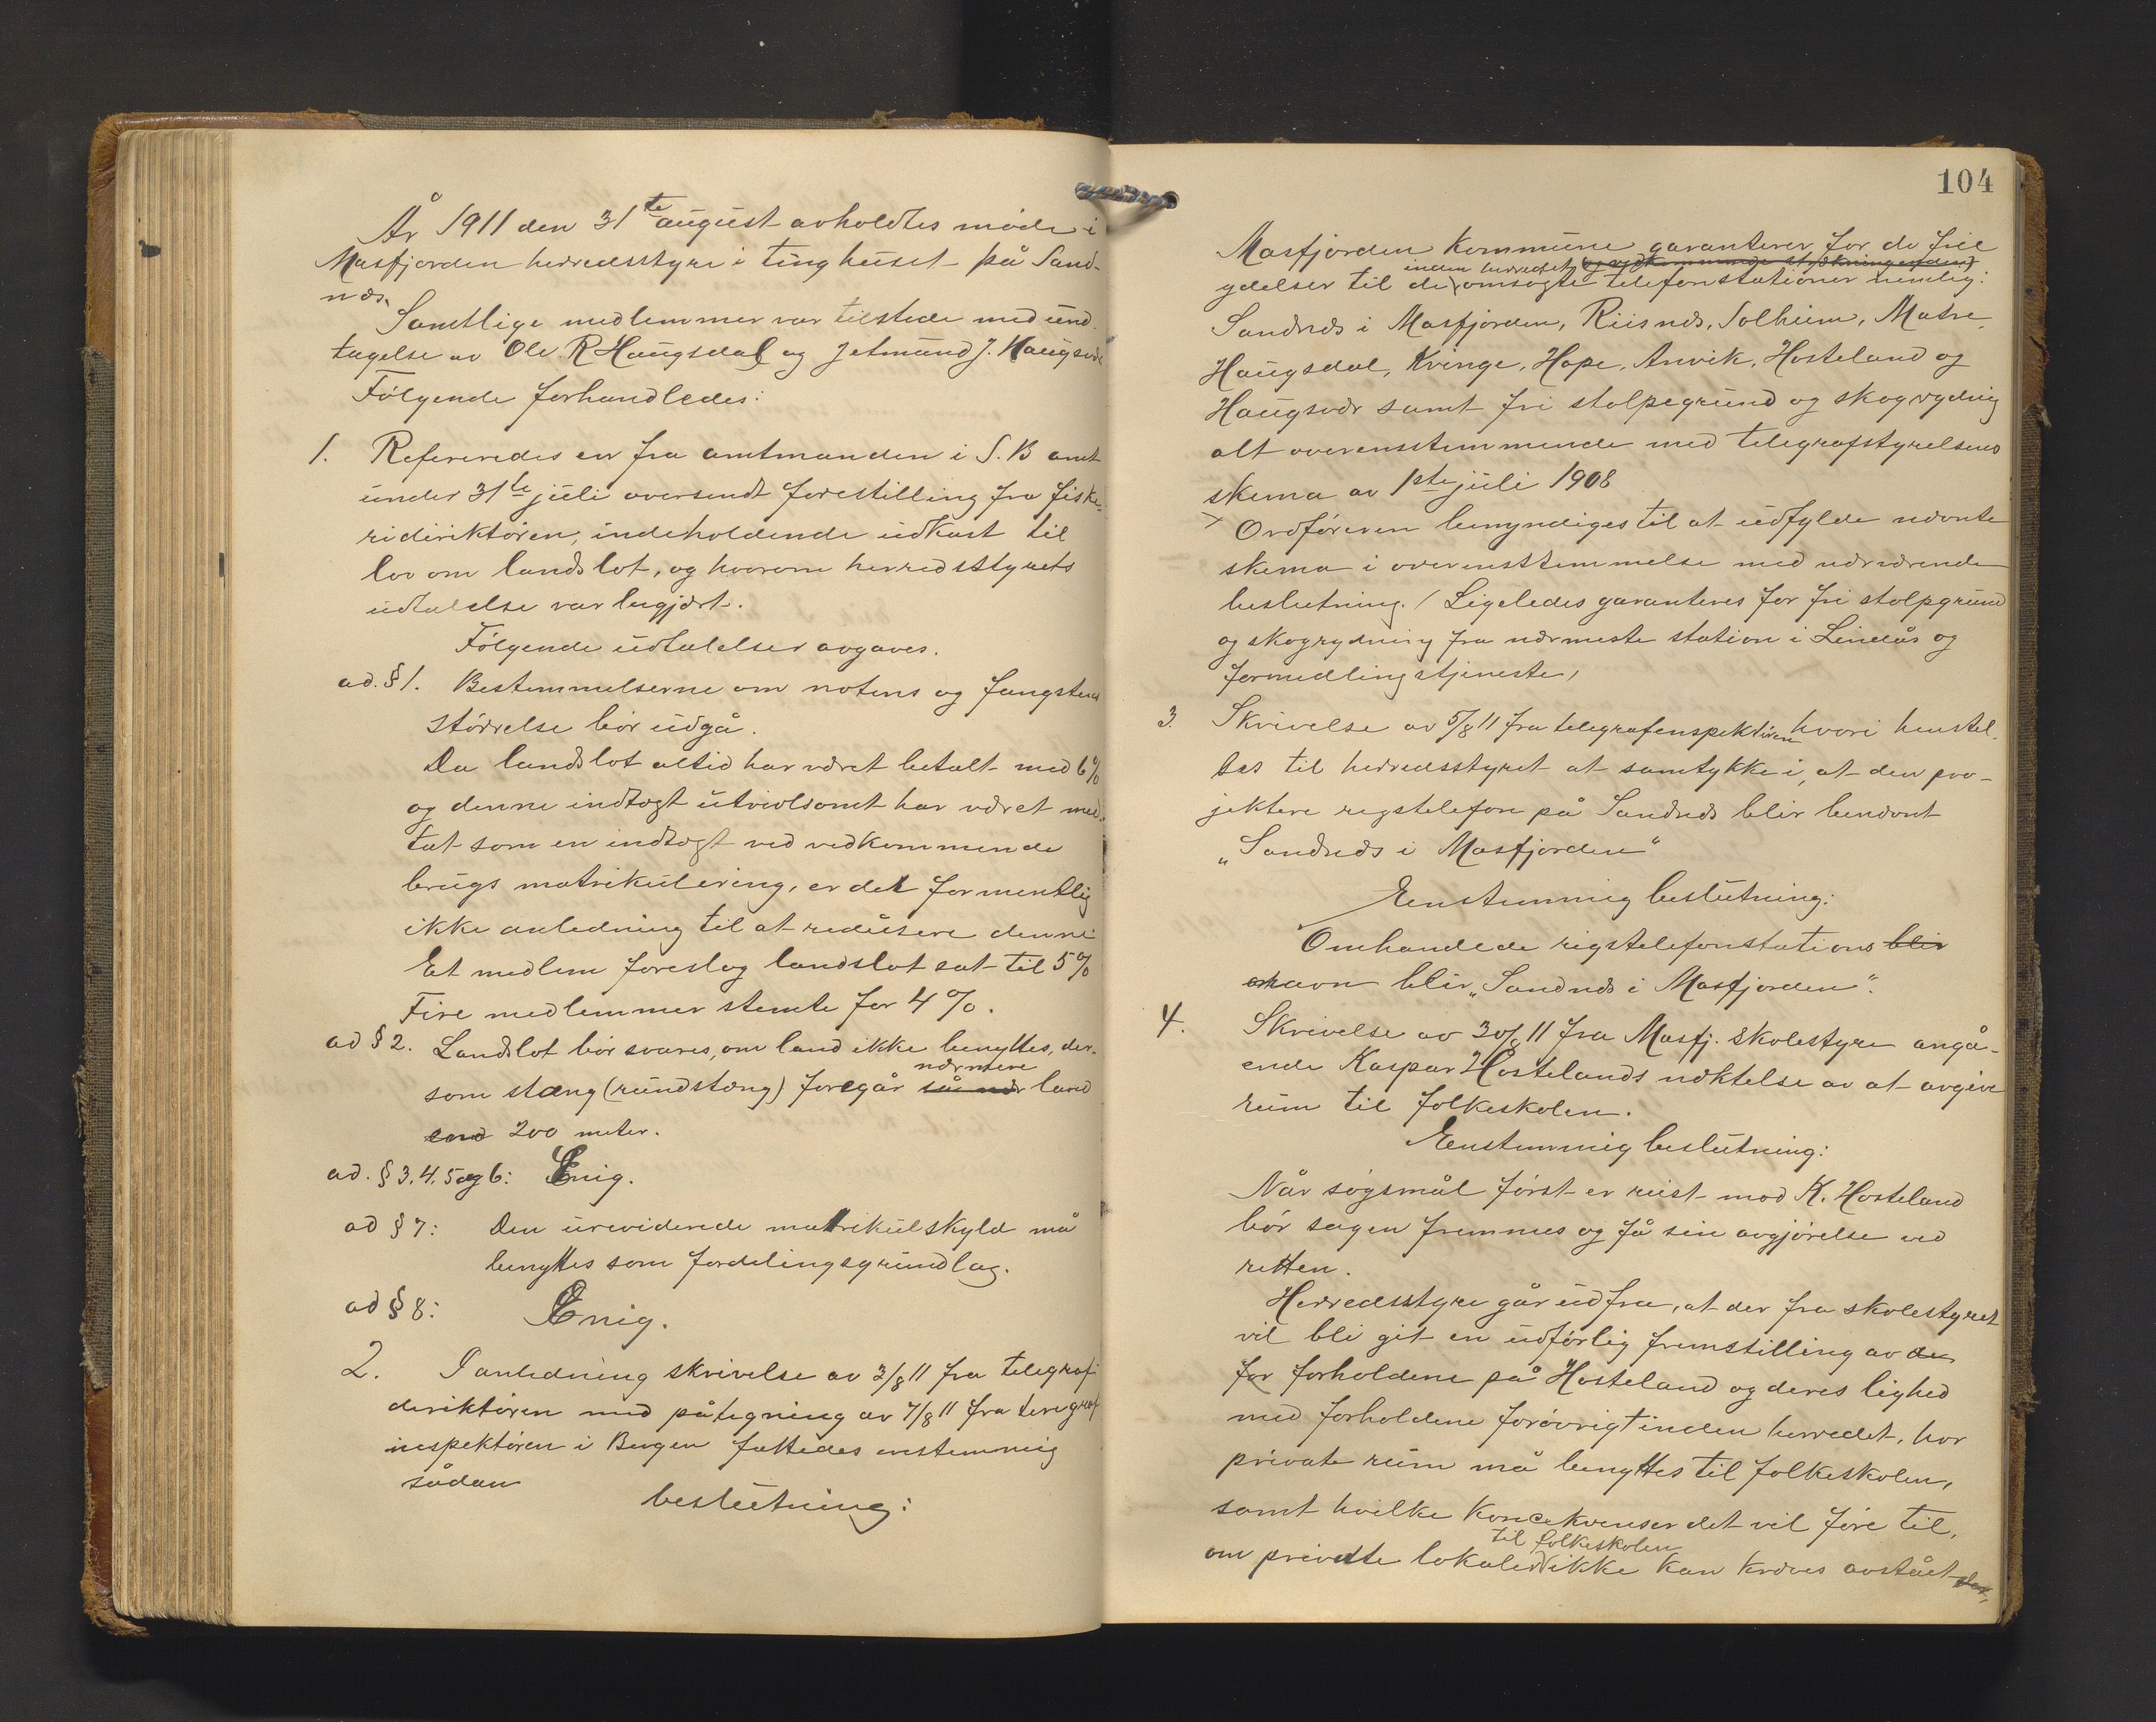 År 1911 den 31te august avholdtes møde i
Masfjorden herredsstyre i tinghuset på Sand-
næs.
Samtlige medlemmer var tilstede med und-
tagelse av Ole R Haugsdal og Jetmund J. Haugsvær
Følgende forhandledes:
1. Refereredes en fra amtmanden i S. B amt
under 31te juli oversendt forestilling fra fiske-
ridirektøren, indeholdende udkast til
lov om landslot, og hvorom herredsstyrets
udtalelse var begjært.
Følgende udtalelser avgaves.
ad. § 1. Bestemmelserne om notens og fangstens
størrelse bør udgå.
Da landslot altid har været betalt med 6%
og denne indtægt utvivlsomt har været med-
tat som en indtægt ved vedkommende
brugs matrikulering, er det formentlig
ikke anledning til at redusere denne
Et medlem foreslog landslot sat til 5%
Fire medlemmer stemte for 4%.
ad § 2. Landslot bør svares, om land ikke benyttes, der-
nærmere
som stæng (rundstæng) foregår så nær land
end 200 meter.
ad. § 3, 4, 5 og 6: Enig.
ad § 7: Den ureviderede matrikulskyld må
benyttes som fordelingsgrundlag.
ad § 8: Enig.
2. I anledning skrivelse av 3/8 11 fra telegraf-
direktøren med påtegning av 7/8 11 fra telegraf
inspektøren i Bergen fattedes enstemmig
sådan
beslutning:
104
Masfjorden kommune garanterer for de frie
inden herredet og vedkommende strækninger
ydelser til de omsøgte telefonstationer nemlig:
Sandnæs i Masfjorden, Riisnæs, Solheim, Matre,
Haugsdal, Kvinge, Hope, Anvik, Hosteland og
Haugsvær samt fri stolpegrund og skogrydnig
alt overensstemmende med telegrafstyrelsens
skema av 1ste juli 1908
Ordføreren bemyndiges til at udfylde nævnte
skema i overensstemmelse med nærværende
beslutning. / Ligeledes garanteres for fri stolpgrund
og skogrydning fra nærmeste station i Lindås og
formidlingstjeneste,
3. Skrivelse av 5/8 11 fra telegrafenspektøren hvori henstel-
les til herredsstyret at samtykke i, at den pro-
jektere rigstelefon på Sandnæs blir benævnt
„Sandnæs i Masfjorden“
Eenstemmig beslutning:
Omhandlede rigstelefonstations blir
navn blir „Sandnæs i Masfjorden“.
4. Skrivelse av 30/8 11 fra Masfj. skolestyre angå-
ende Kaspar Hostelands nektelse av at avgive
rum til folkeskolen.
Eenstemmig beslutning:
Når søgsmål først er reist mod K. Hosteland
bør sagen fremmes og få sin avgjørelse ved
retten.
Herredsstyre går ud fra, at der fra skolestyret
vil bli git en udførlig fremstilling av de
for forholdene på Hosteland og deres lighed
med forholdene forøvrigt inden herredet, hvor
private rum må benyttes til folkeskolen,
samt hvilke koncekvenser det vil føre til,
til folkeskolen
om private lokaler ikke kan kræves avstået